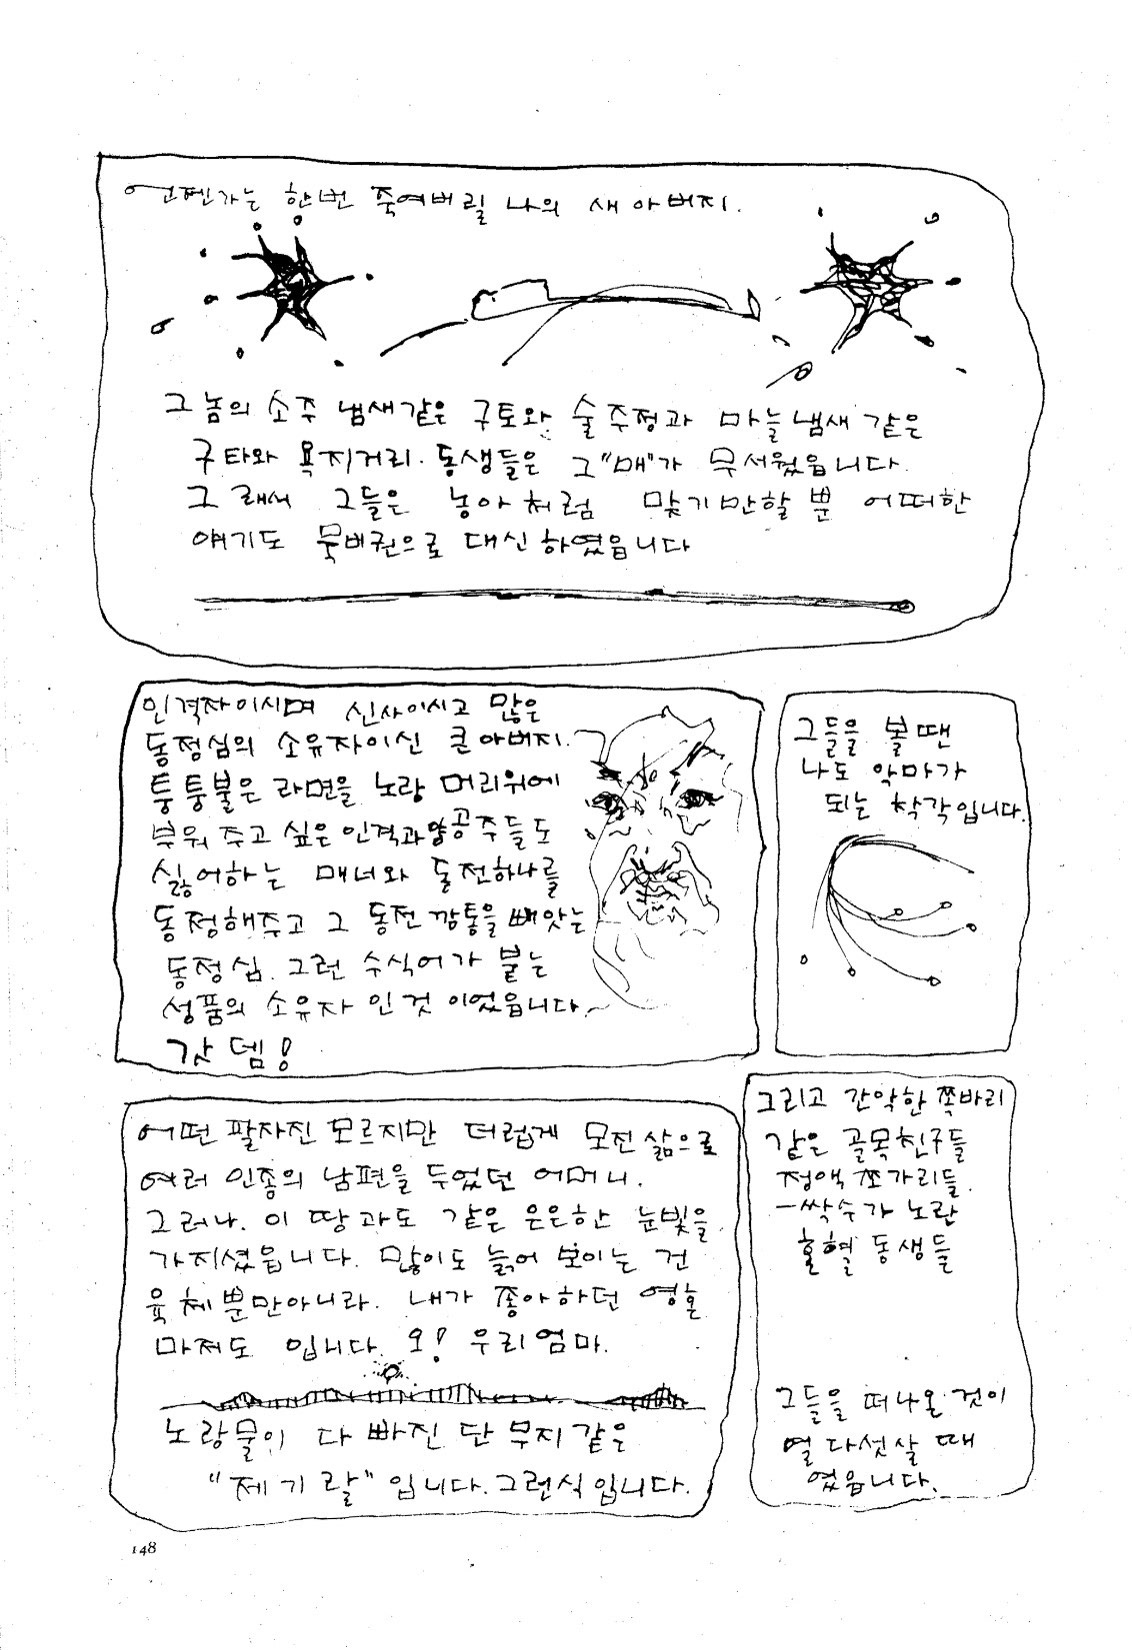 언젠가는 한번 죽여버릴 나의 새 아버지.
그 놈의 소주 냄새같은 구토와 술주정과 마늘냄새 같은
구타와 욕지거리. 동생들은 그 "매"가 무서웠읍니다.
그래서 그들은 농아처럼 맞기만할 뿐 어떠한
얘기도 묵비권으로 대신하였읍니다
인격자이시며 신사이시고 많은
동정심의 소유자이신 큰아버지.
퉁퉁불은 라면을 노랑 머리위에
부워 주고 싶은 인격과 양공주들도
싫어하는 매너와 동전하나를
동정해주고 그 동전 깡통을 빼앗는
동정심. 그런 수식어가 붙는
성품의 소유자 인 것 이었읍니다.
갓 뎀!
그들을 볼 땐
나도 악마가
되는 착각입니다.
어떤 팔자진 모르지만 더럽게 모진 삶으로
여러 인종의 남편을 두었던 어머니.
그러나. 이 땅과도 같은 은은한 눈빛을
가지셨읍니다. 많이도 늙어 보이는 건
육체뿐만아니라. 내가 좋아하던 영혼
마저도 입니다. 오! 우리엄마.
노랑물이 다 빠진 단무지같은
"제기랄" 입니다. 그런식입니다.
그리고 간악한 쪽바리
같은 골목친구들
정액 쪼가리들.
싹수가 노란
혼혈 동생들
그들을 떠나온 것이
열 다섯살 때
였읍니다.
148